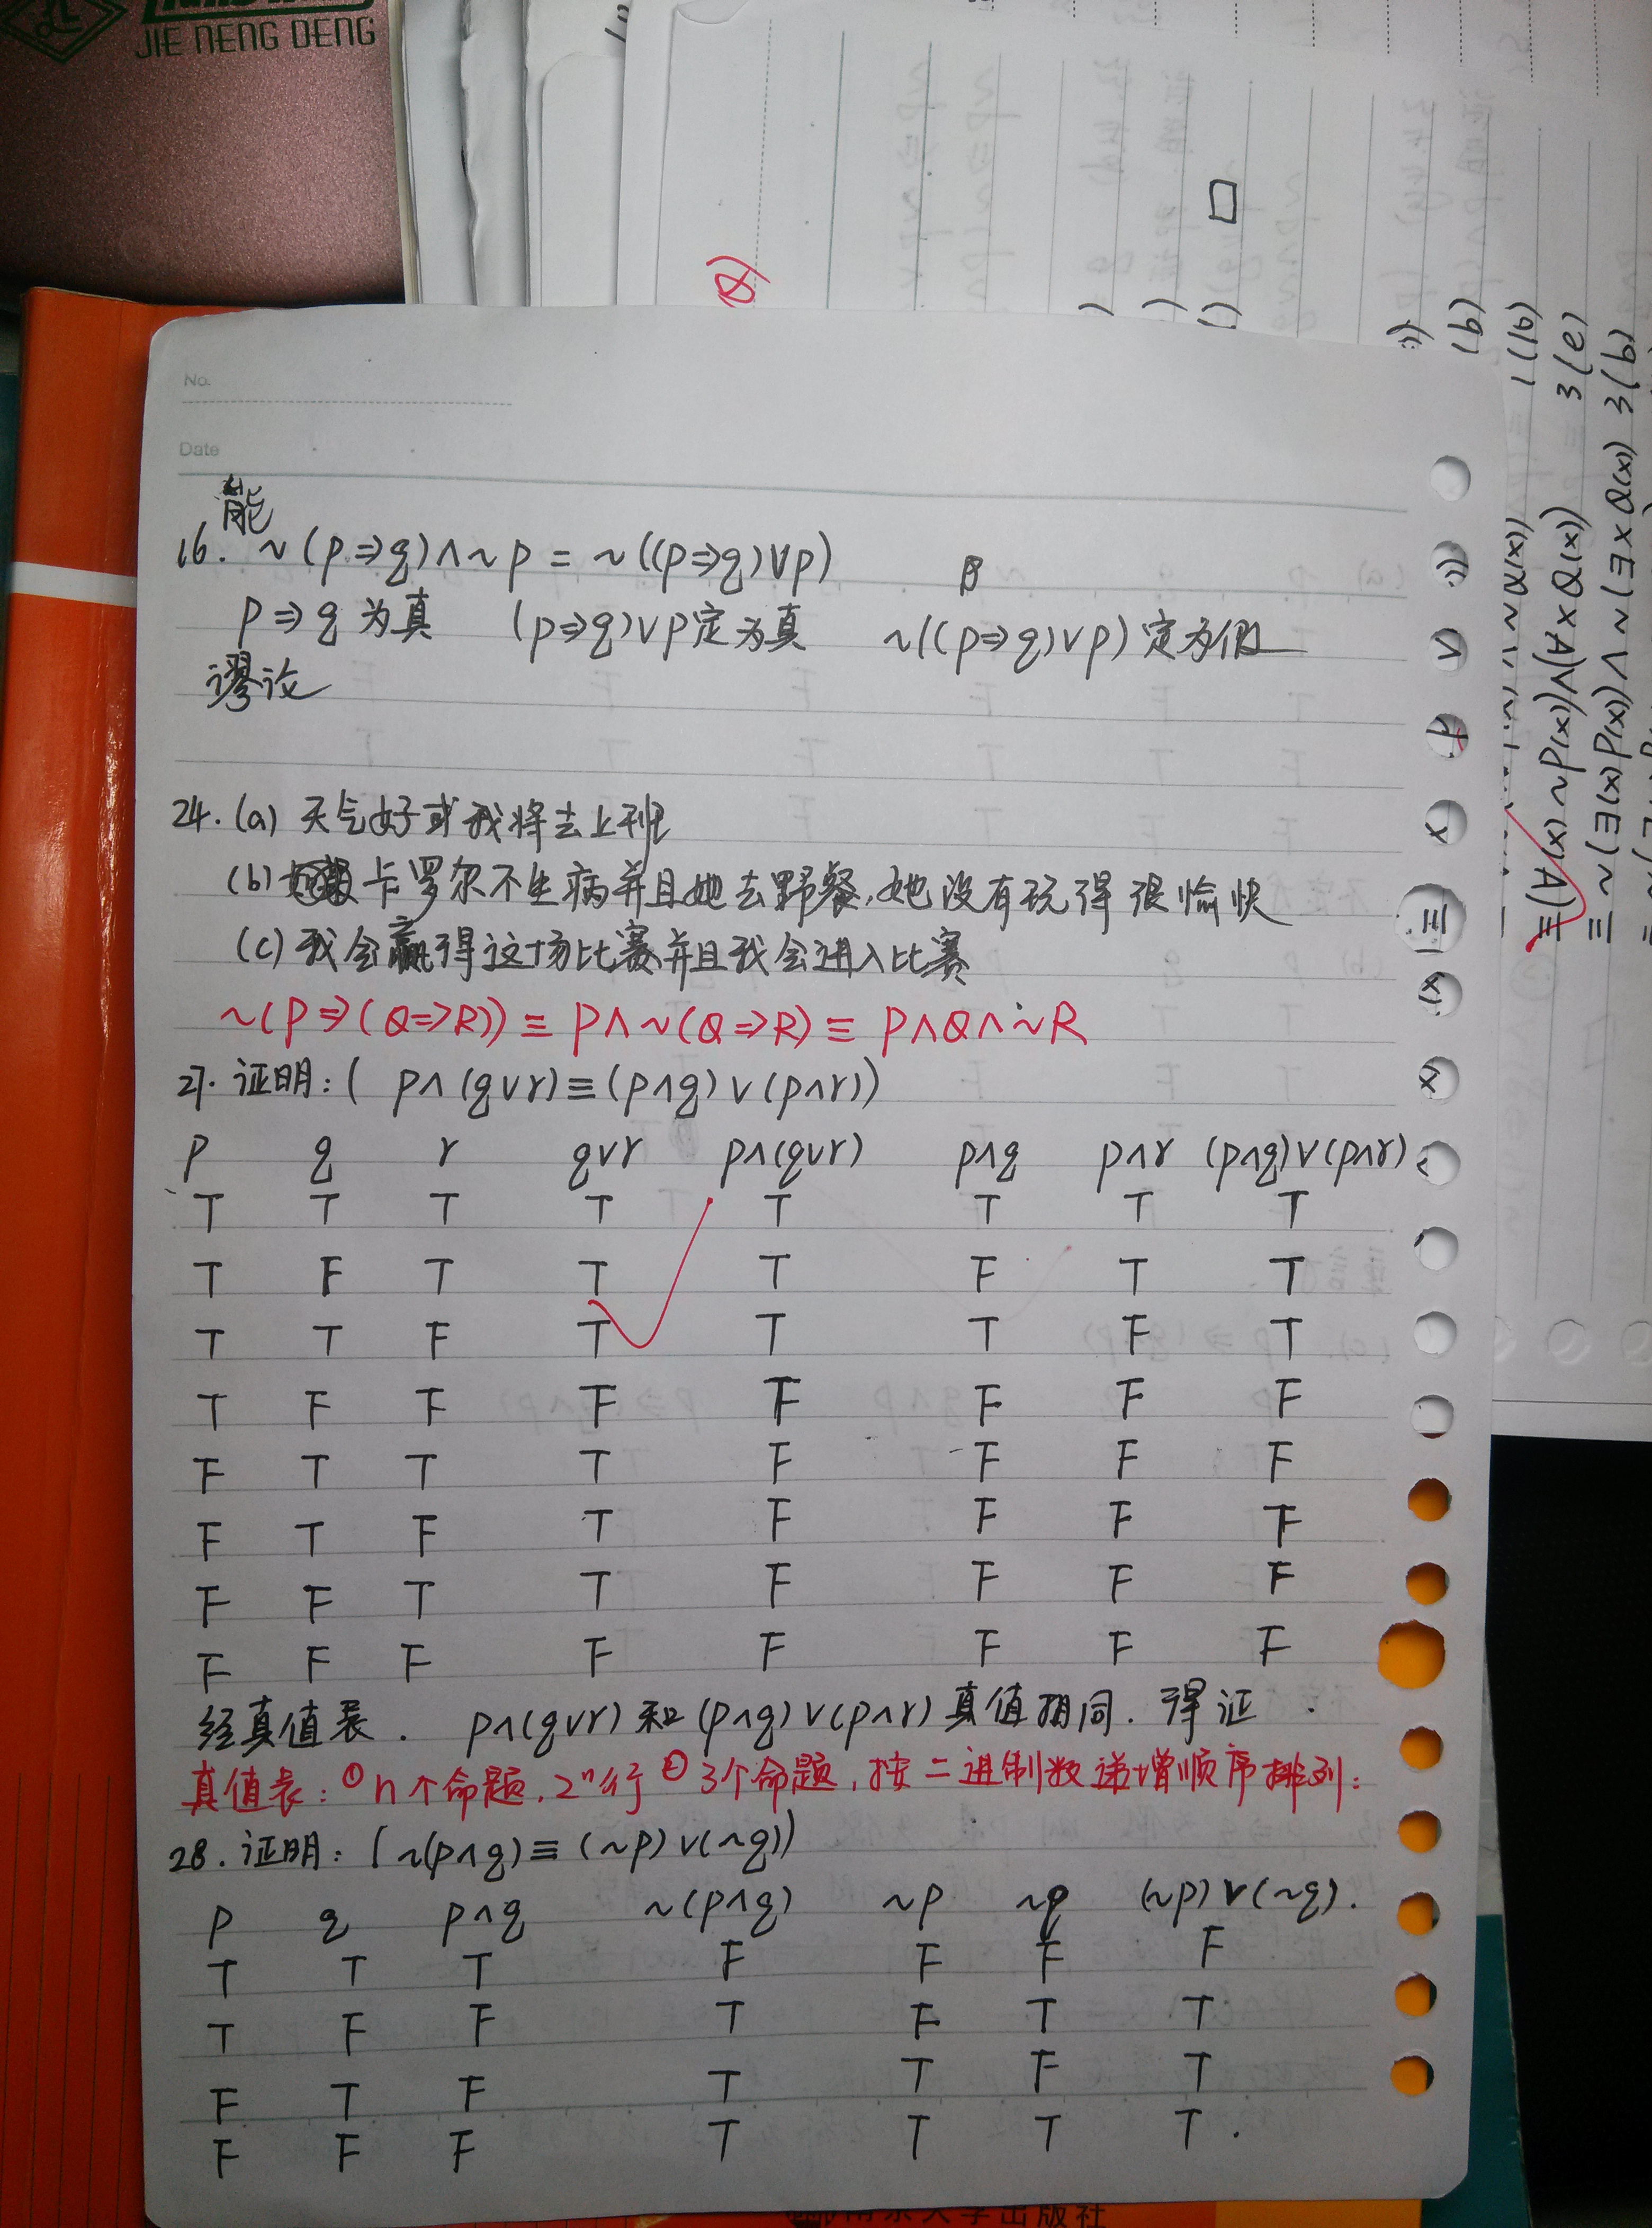 JIE NENG DENG
No.
Date
能
16. ~(p⇒q)∧~p = ~((p⇒q)∨p)
p⇒q为真 (p⇒q)∨p定为真 ~((p⇒q)∨p)定为假
谬论
24. (a) 天气好或我将去上班
(b) 卡罗尔不生病并且她去野餐,她没有玩得很愉快
(c) 我会赢得这场比赛并且我会进入比赛
~(P⇒(Q⇒R)) ≡ P∧~(Q⇒R) ≡ P∧Q∧~R
27. 证明:( p∧(q∨r)≡(p∧q)∨(p∧r))
p q r q∨r p∧(q∨r) p∧q p∧r (p∧q)∨(p∧r)
T T T T T T T T
T F T T T F T T
T T F T T T F T
T F F F F F F F
F T T T F F F F
F T F T F F F F
F F T T F F F F
F F F F F F F F
经真值表. p∧(q∨r)和(p∧q)∨(p∧r)真值相同. 得证.
真值表: ①n个命题, 2ⁿ行 ②3个命题, 按二进制数递增顺序排列:
28. 证明: (~(p∧q)≡(~p)∨(~q))
p q p∧q ~(p∧q) ~p ~q (~p)∨(~q).
T T T F F F F
T F F T F T T
F T F T T F T
F F F T T T T.
1(b)
3(e)
≡(∀(x)~P(x))∨(∀xQ(x))
≡~(∃(x)P(x))∨~(∃xQ(x)) 3(b)
大学出版社